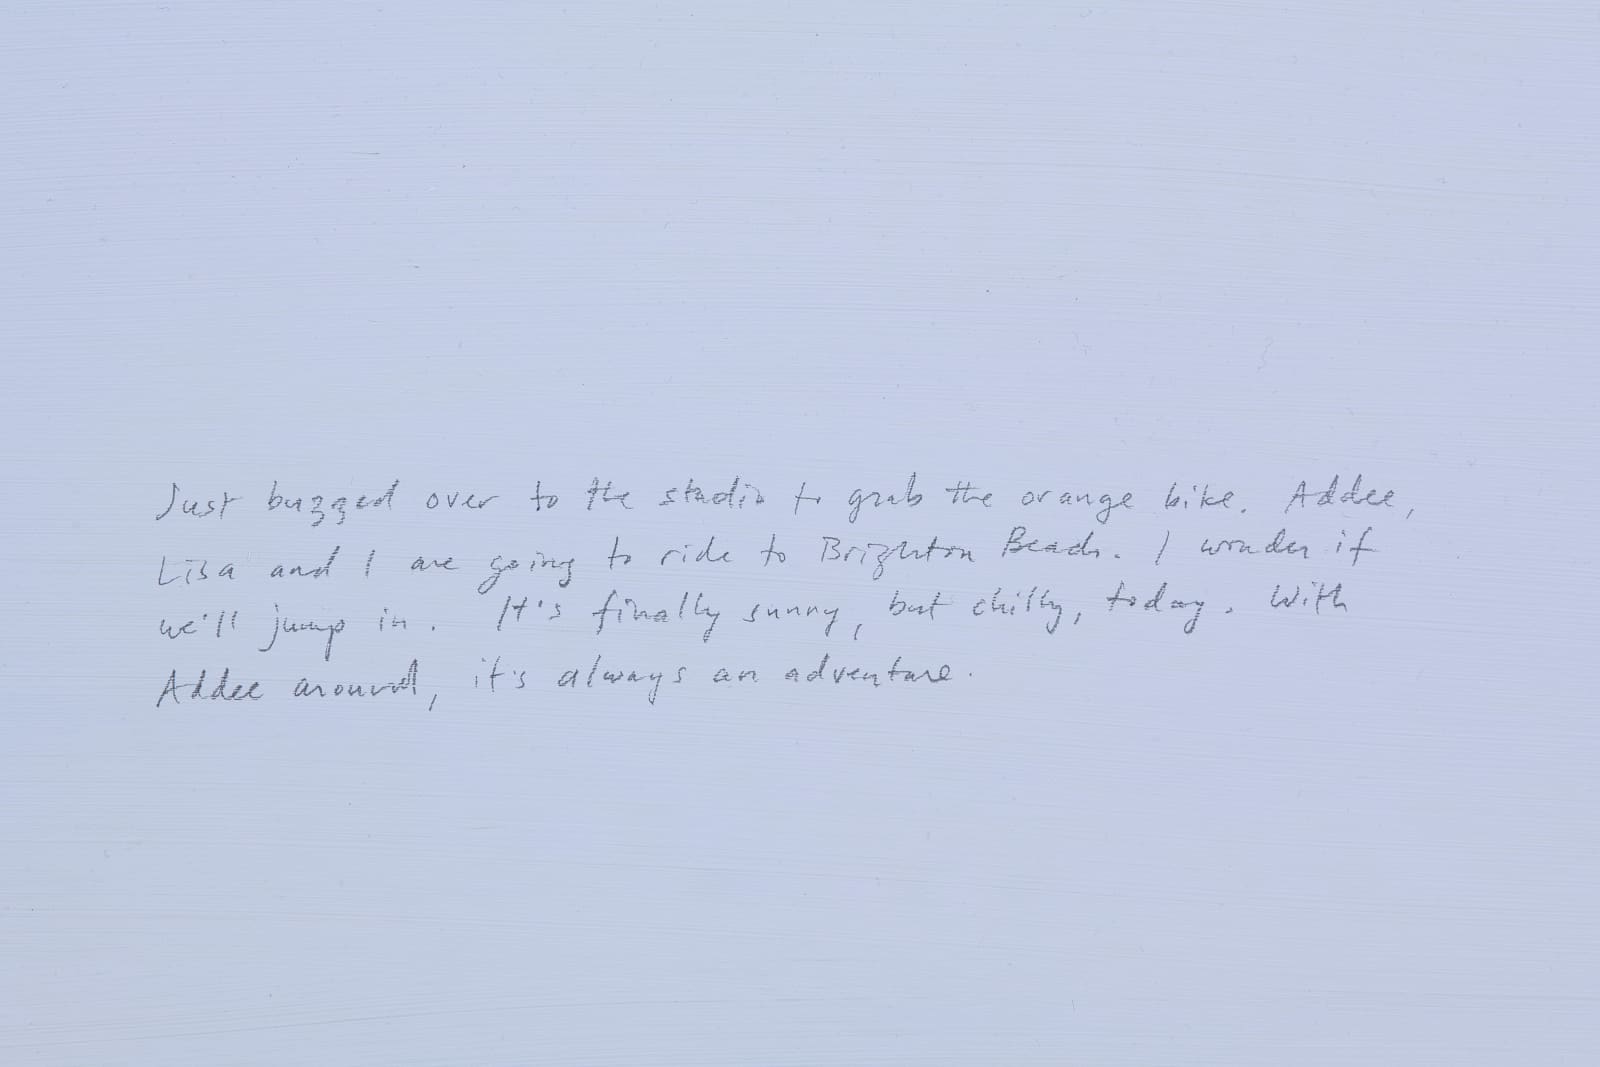 Just buzzed over to the studio to grab the orange bike. Addee,
Lisa and I are going to ride to Brighton Beach. I wonder if
we'll jump in. It's finally sunny, but chilly, today. With
Addee around, it's always an adventure.